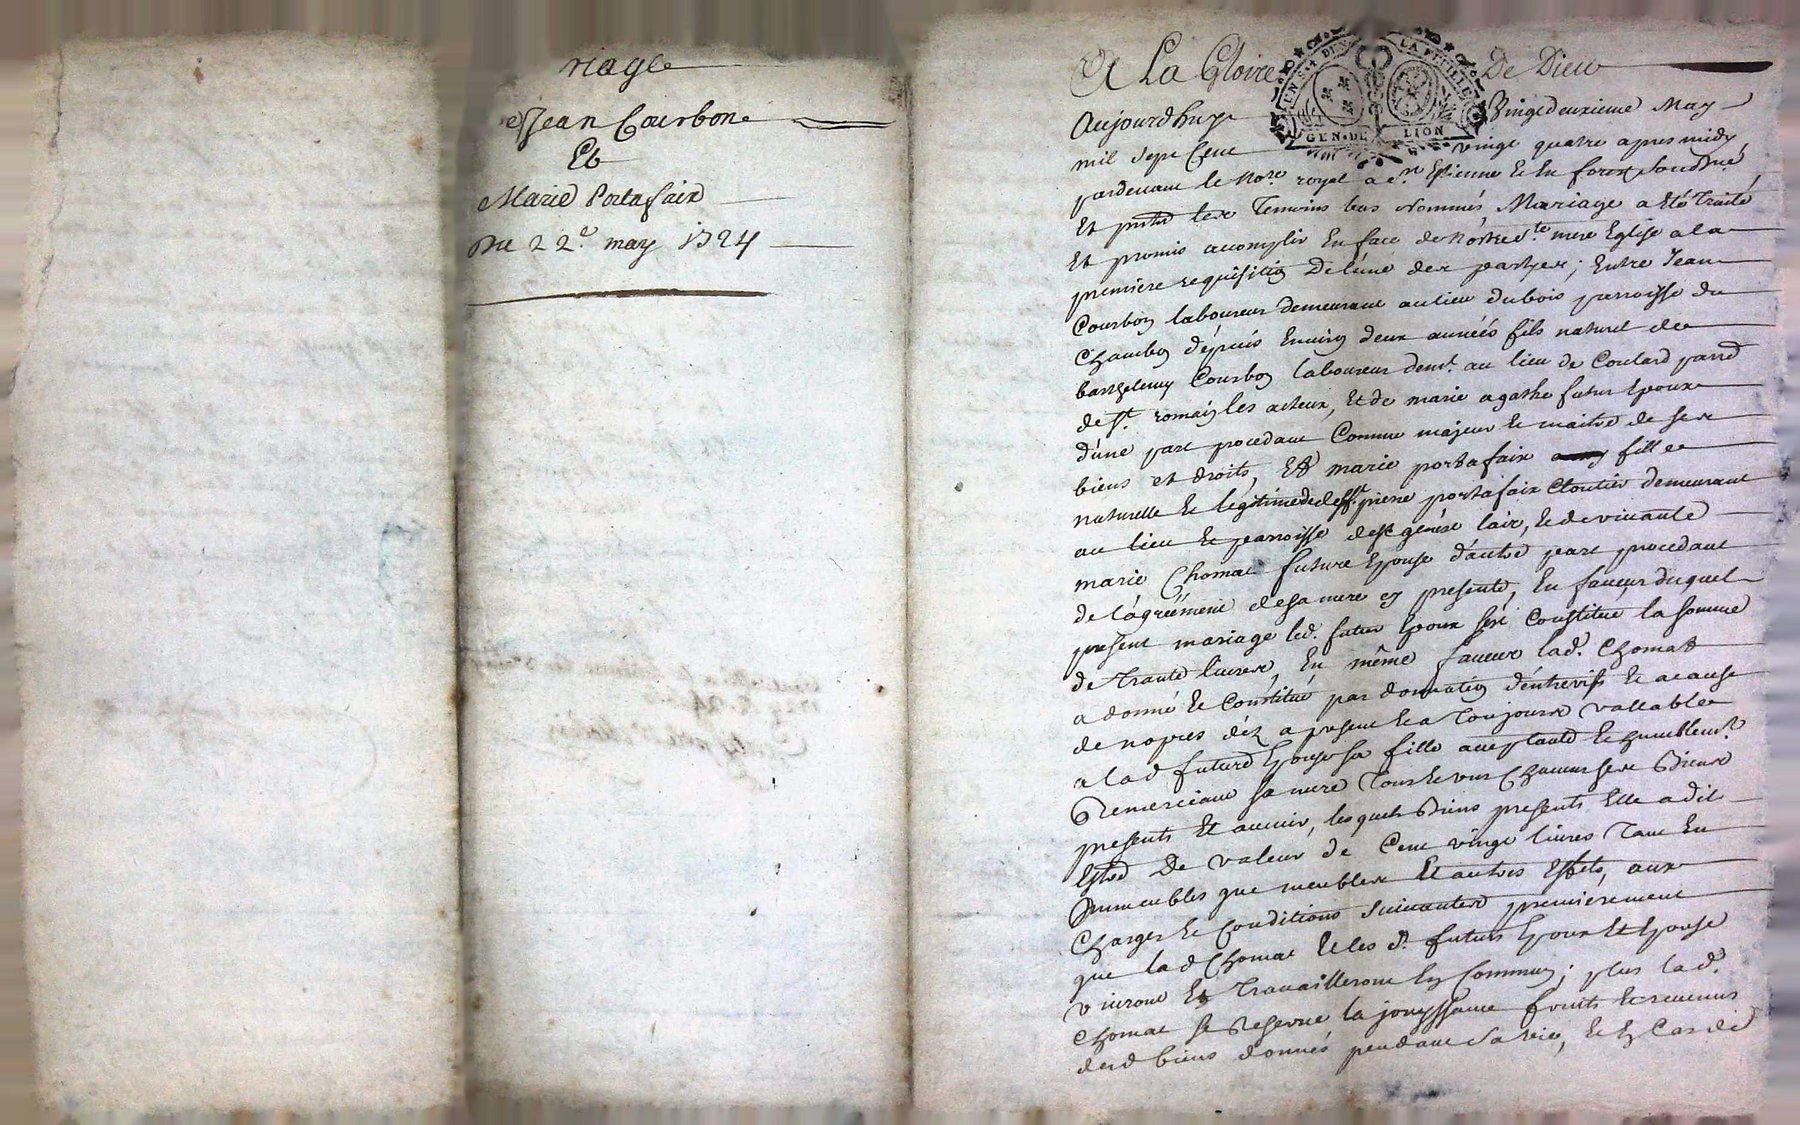 riage
Jean Courbon
Et
Marie Portafaix
Du 22e. may 1724
A La Gloire De Dieu
UNE DEN LA FEUILLE
GEN. DE LION
Aujourdhuy Vingtdeuxieme May
mil Sept Cent vingt quatre apres midy
pardevant le No.re royal a St Etienne & en forez soussigné
Et presents les Temoins bas Nommés Mariage a Eté Traité
Et promis accomplir En face de Nostre S.te mere Eglise a la
premiere requisition De l'une des parties; Entre Jean
Courbon laboureur demeurant au lieu du bois parroisse du
Chambon depuis Environ deux années fils naturel de
barthelemy Courbon laboureur dem.t au lieu de Coulard parr.
de S.t romain les atheux, Et de marie agathe futur Epoux
d'une part procedant Comme majeur & maitre de ses
biens et droits, Et marie portafaix fille
naturelle & legitime de deff.t pierre portafaix Cloutier demeurant
au lieu & parroisse de St genest lair, & de vivante
marie Chomat future Epouse d'autre part procedant
de l'agréement de sa mere cy presente, En faveur duquel
present mariage led. futur Epoux s'est Constitué la somme
de Trante livres, En même faveur lad. Chomat
a donné & Constitué par donnation d'entrevifs & a cause
de nopces déz a present & a Toujours vallable
a lad future Epouse sa fille acceptante & humblem.t
Remerciant sa mere Tous & uns Chacuns ses Biens
presents Et avenir, lesquels Biens presents Elle a dit
Estre De valeur de Cent vingt livres Tant En
Immeubles que meubles Et autres Effets, aux
Charges & Conditions Suivantes premierement
que lad Chomat & les d. futurs Epoux Et Epouse
vivront Et Travailleront En Commun; plus lad.
Chomat se Reserve la jouyssance fruits & revenus
desd biens donnés pendant Sa vie, & En Cas de